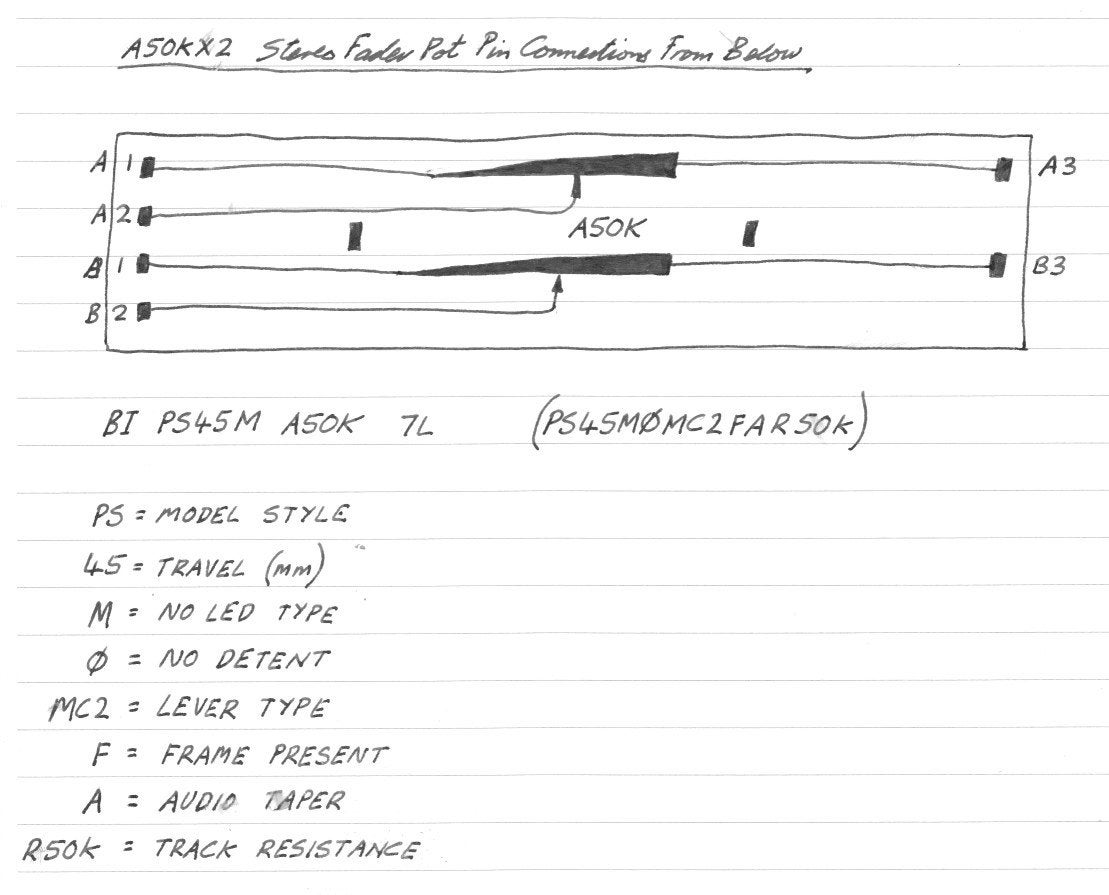 A50KX2 Stereo Fader Pot Pin Connections From Below
A 1 A3
A 2
A50K
B 1 B3
B 2
BI PS45M A50K 7L (PS45MØMC2FAR50K)
PS = MODEL STYLE
45 = TRAVEL (mm)
M = NO LED TYPE
Ø = NO DETENT
MC2 = LEVER TYPE
F = FRAME PRESENT
A = AUDIO TAPER
R50K = TRACK RESISTANCE